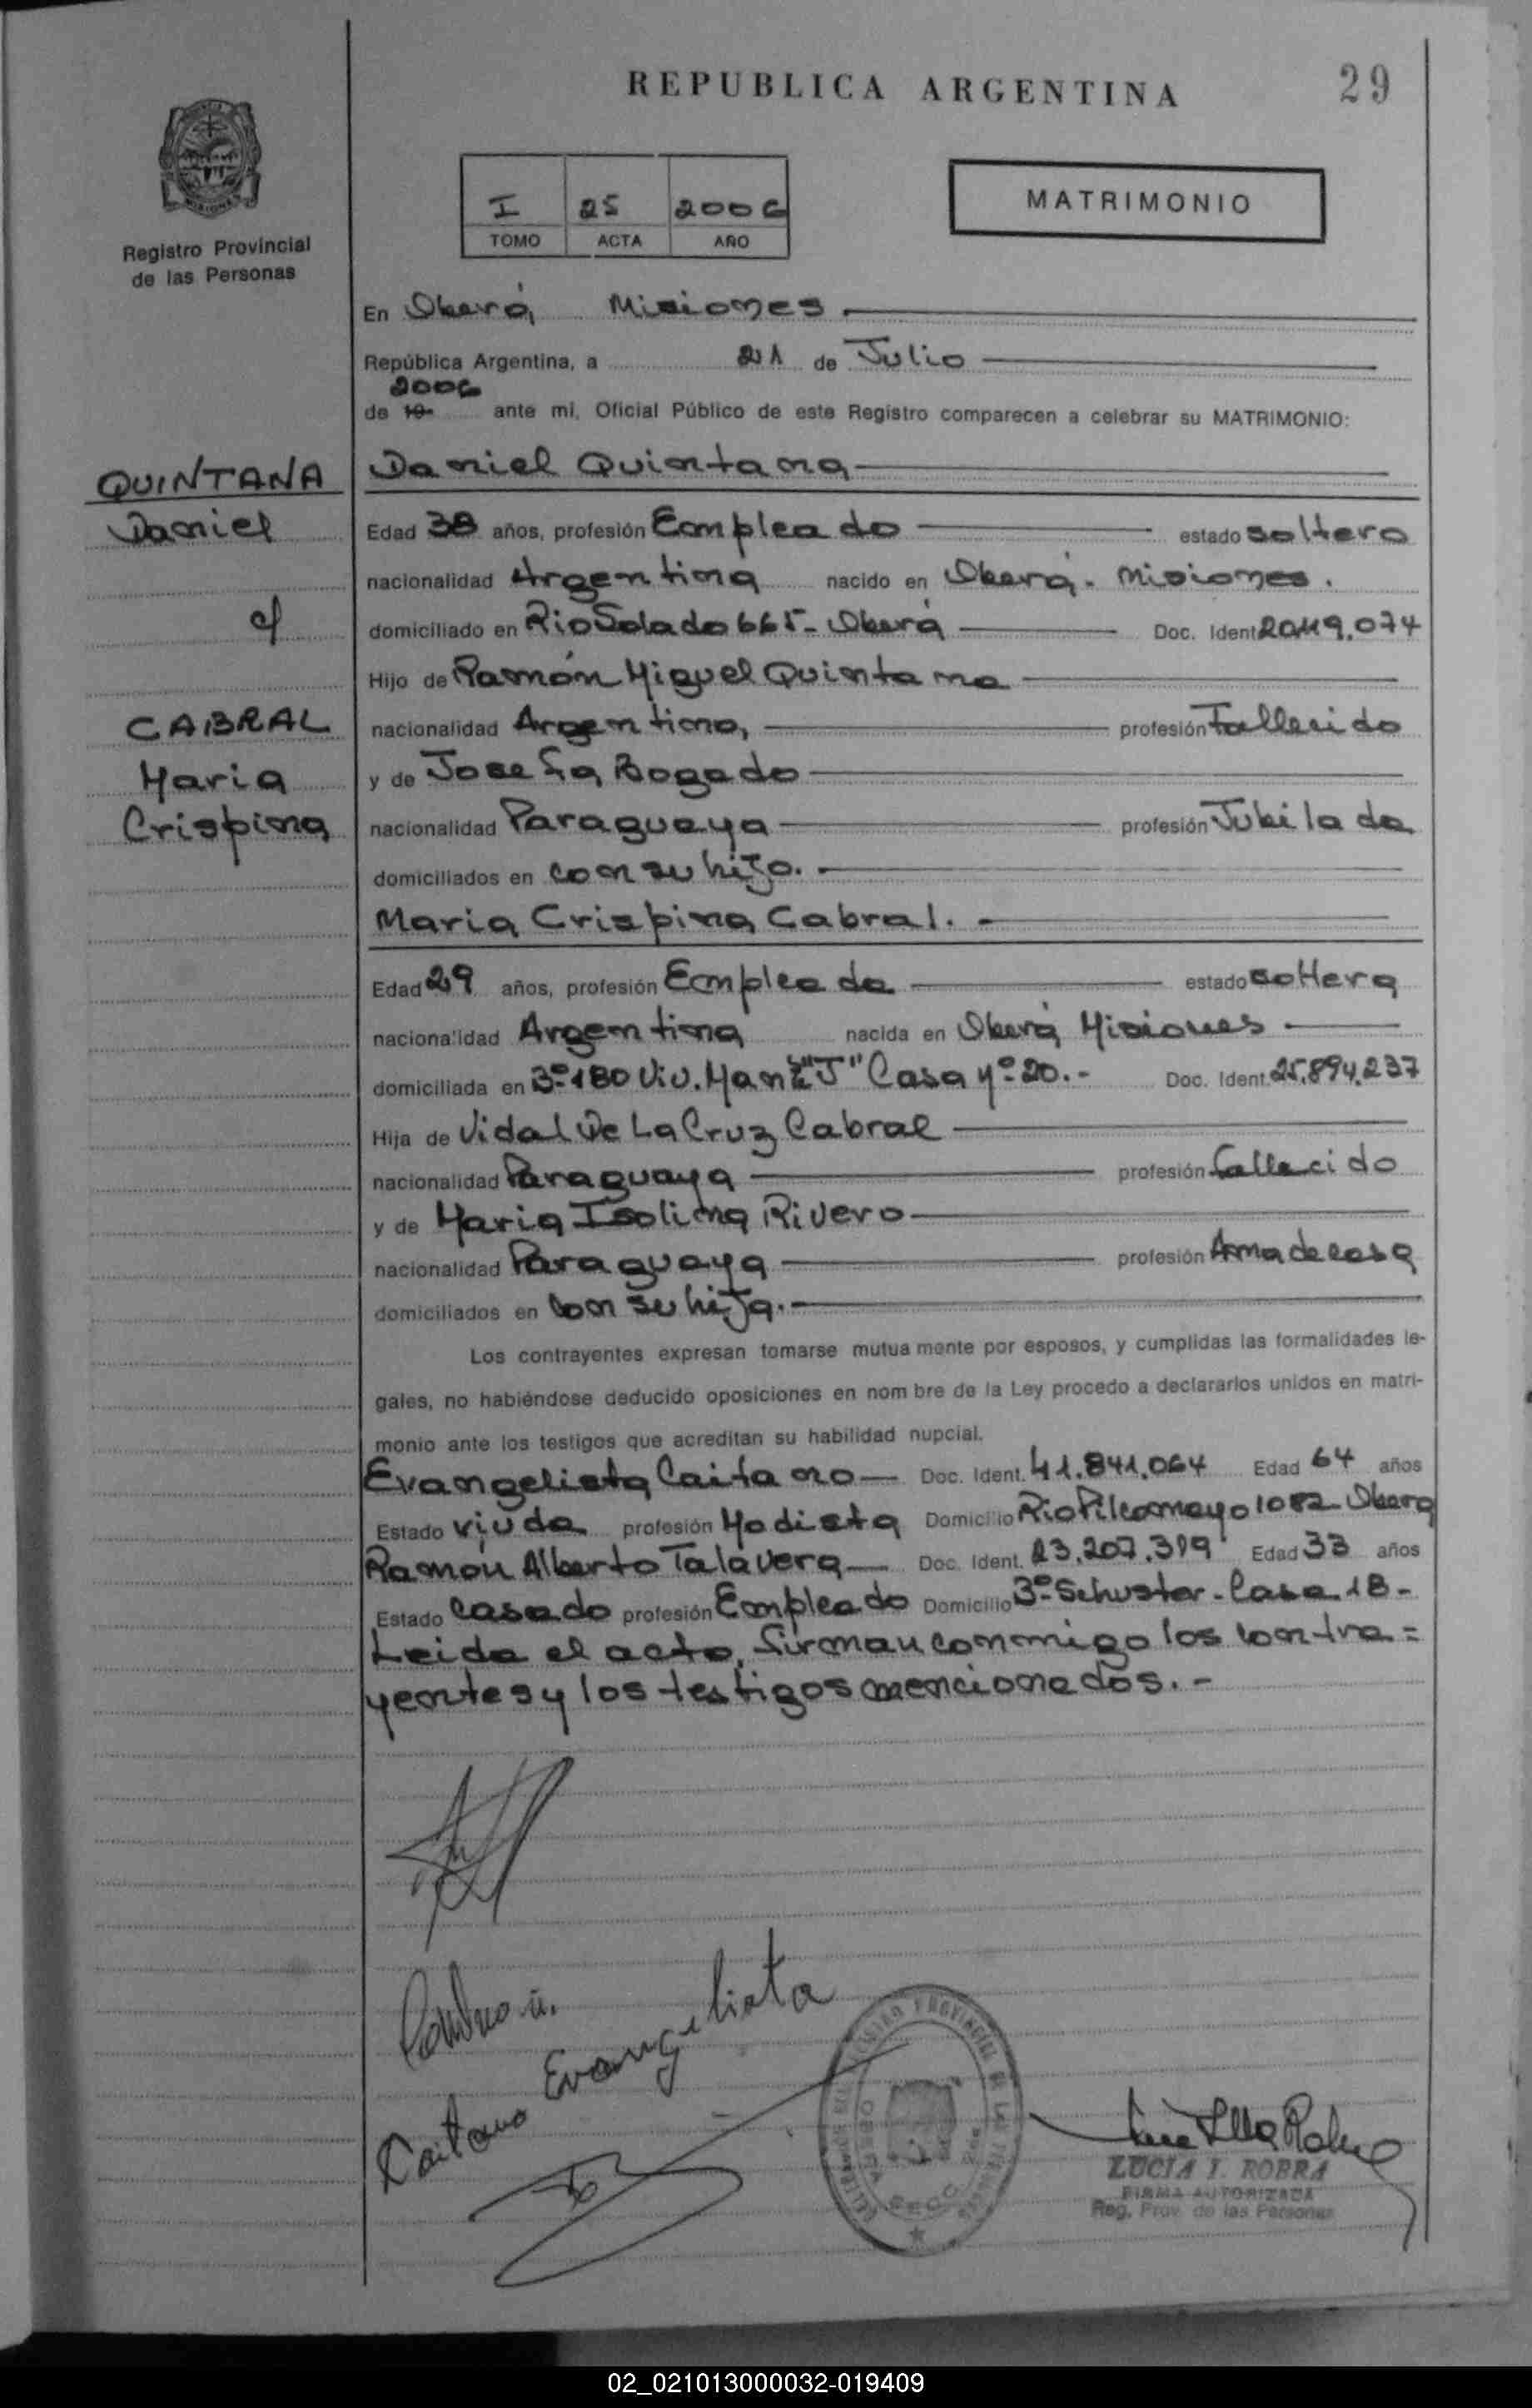 REPUBLICA ARGENTINA
29
I 25 2006
TOMO ACTA AÑO
MATRIMONIO
MISIONES
Registro Provincial
de las Personas
En Oberá Misiones
República Argentina, a 21 de Julio
2006
de 19 ante mi, Oficial Público de este Registro comparecen a celebrar su MATRIMONIO:
QUINTANA
Daniel
c/
CABRAL
Maria
Crispina
Daniel Quintana
Edad 38 años, profesión Empleado estado soltero
nacionalidad Argentina nacido en Oberá. Misiones.
domiciliado en Rio Salado 665- Oberá Doc. Ident 20.119.074
Hijo de Ramón Miguel Quintana
nacionalidad Argentina, profesión Fallecido
y de Josefa Bogado
nacionalidad Paraguaya profesión Jubilada
domiciliados en con su hijo.
Maria Crispina Cabral.-
Edad 29 años, profesión Empleada estado soltera
nacionalidad Argentina nacida en Oberá Misiones
domiciliada en 3º-180 Viv. Manz "J" Casa Nº 20.- Doc. Ident. 25.894.237
Hija de Vidal De La Cruz Cabral
nacionalidad Paraguaya profesión fallecido
y de Maria Isolina Rivero
nacionalidad Paraguaya profesión Ama de casa
domiciliados en con su hija.-
Los contrayentes expresan tomarse mutua mente por esposos, y cumplidas las formalidades le-
gales, no habiéndose deducido oposiciones en nom bre de la Ley procedo a declararlos unidos en matri-
monio ante los testigos que acreditan su habilidad nupcial.
Evangelista Caitano Doc. Ident. 41.841.064 Edad 64 años
Estado viuda profesión Modista Domicilio Rio Pilcomayo 1082 Oberá
Ramon Alberto Talavera Doc. Ident. 23.207.319 Edad 33 años
Estado Casado profesión Empleado Domicilio 3º-Schuster-Casa 18-
Leida el acta, firman conmigo los contra=
yentes y los testigos mencionados.-
Caitano Evangelista
LUCIA I. ROBRA
FIRMA AUTORIZADA
Reg. Prov. de las Personas
02_021013000032-019409